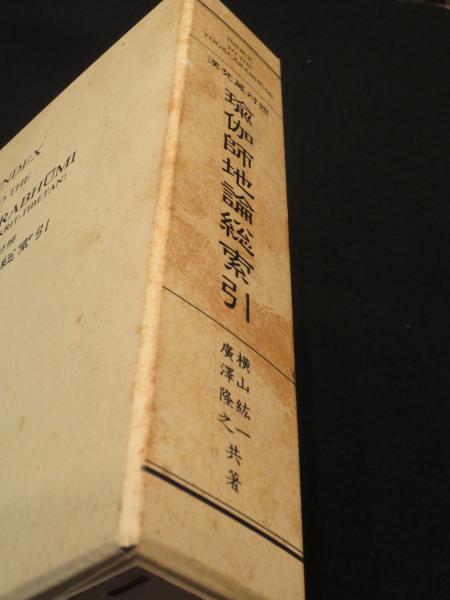 INDEX
TO THE
YOGĀCĀRABHŪMI
漢梵蔵対照
瑜伽師地論総索引
横山紘一
廣澤隆之
共著
INDEX
O THE
RABHŪMI
KRIT-TIBETAN)
対照
総索引